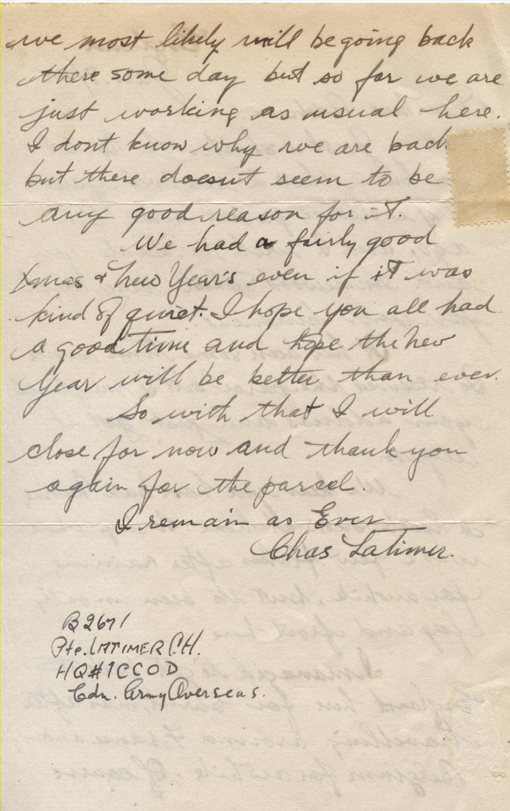 we most likely will be going back
there some day but so far we are
just working as usual here.
I dont know why we are back
but there doesnt seem to be
any good reason for it.
We had a fairly good
Xmas & New Year's even if it was
kind of quiet. I hope you all had
a good time and hope the New
Year will be better than ever.
So with that I will
close for now and thank you
again for the parcel.
I remain as Ever
Chas Latimer.
B2671
Pte. LATIMER C.H.
HQ #1 CCOD
Cdn. Army Overseas.